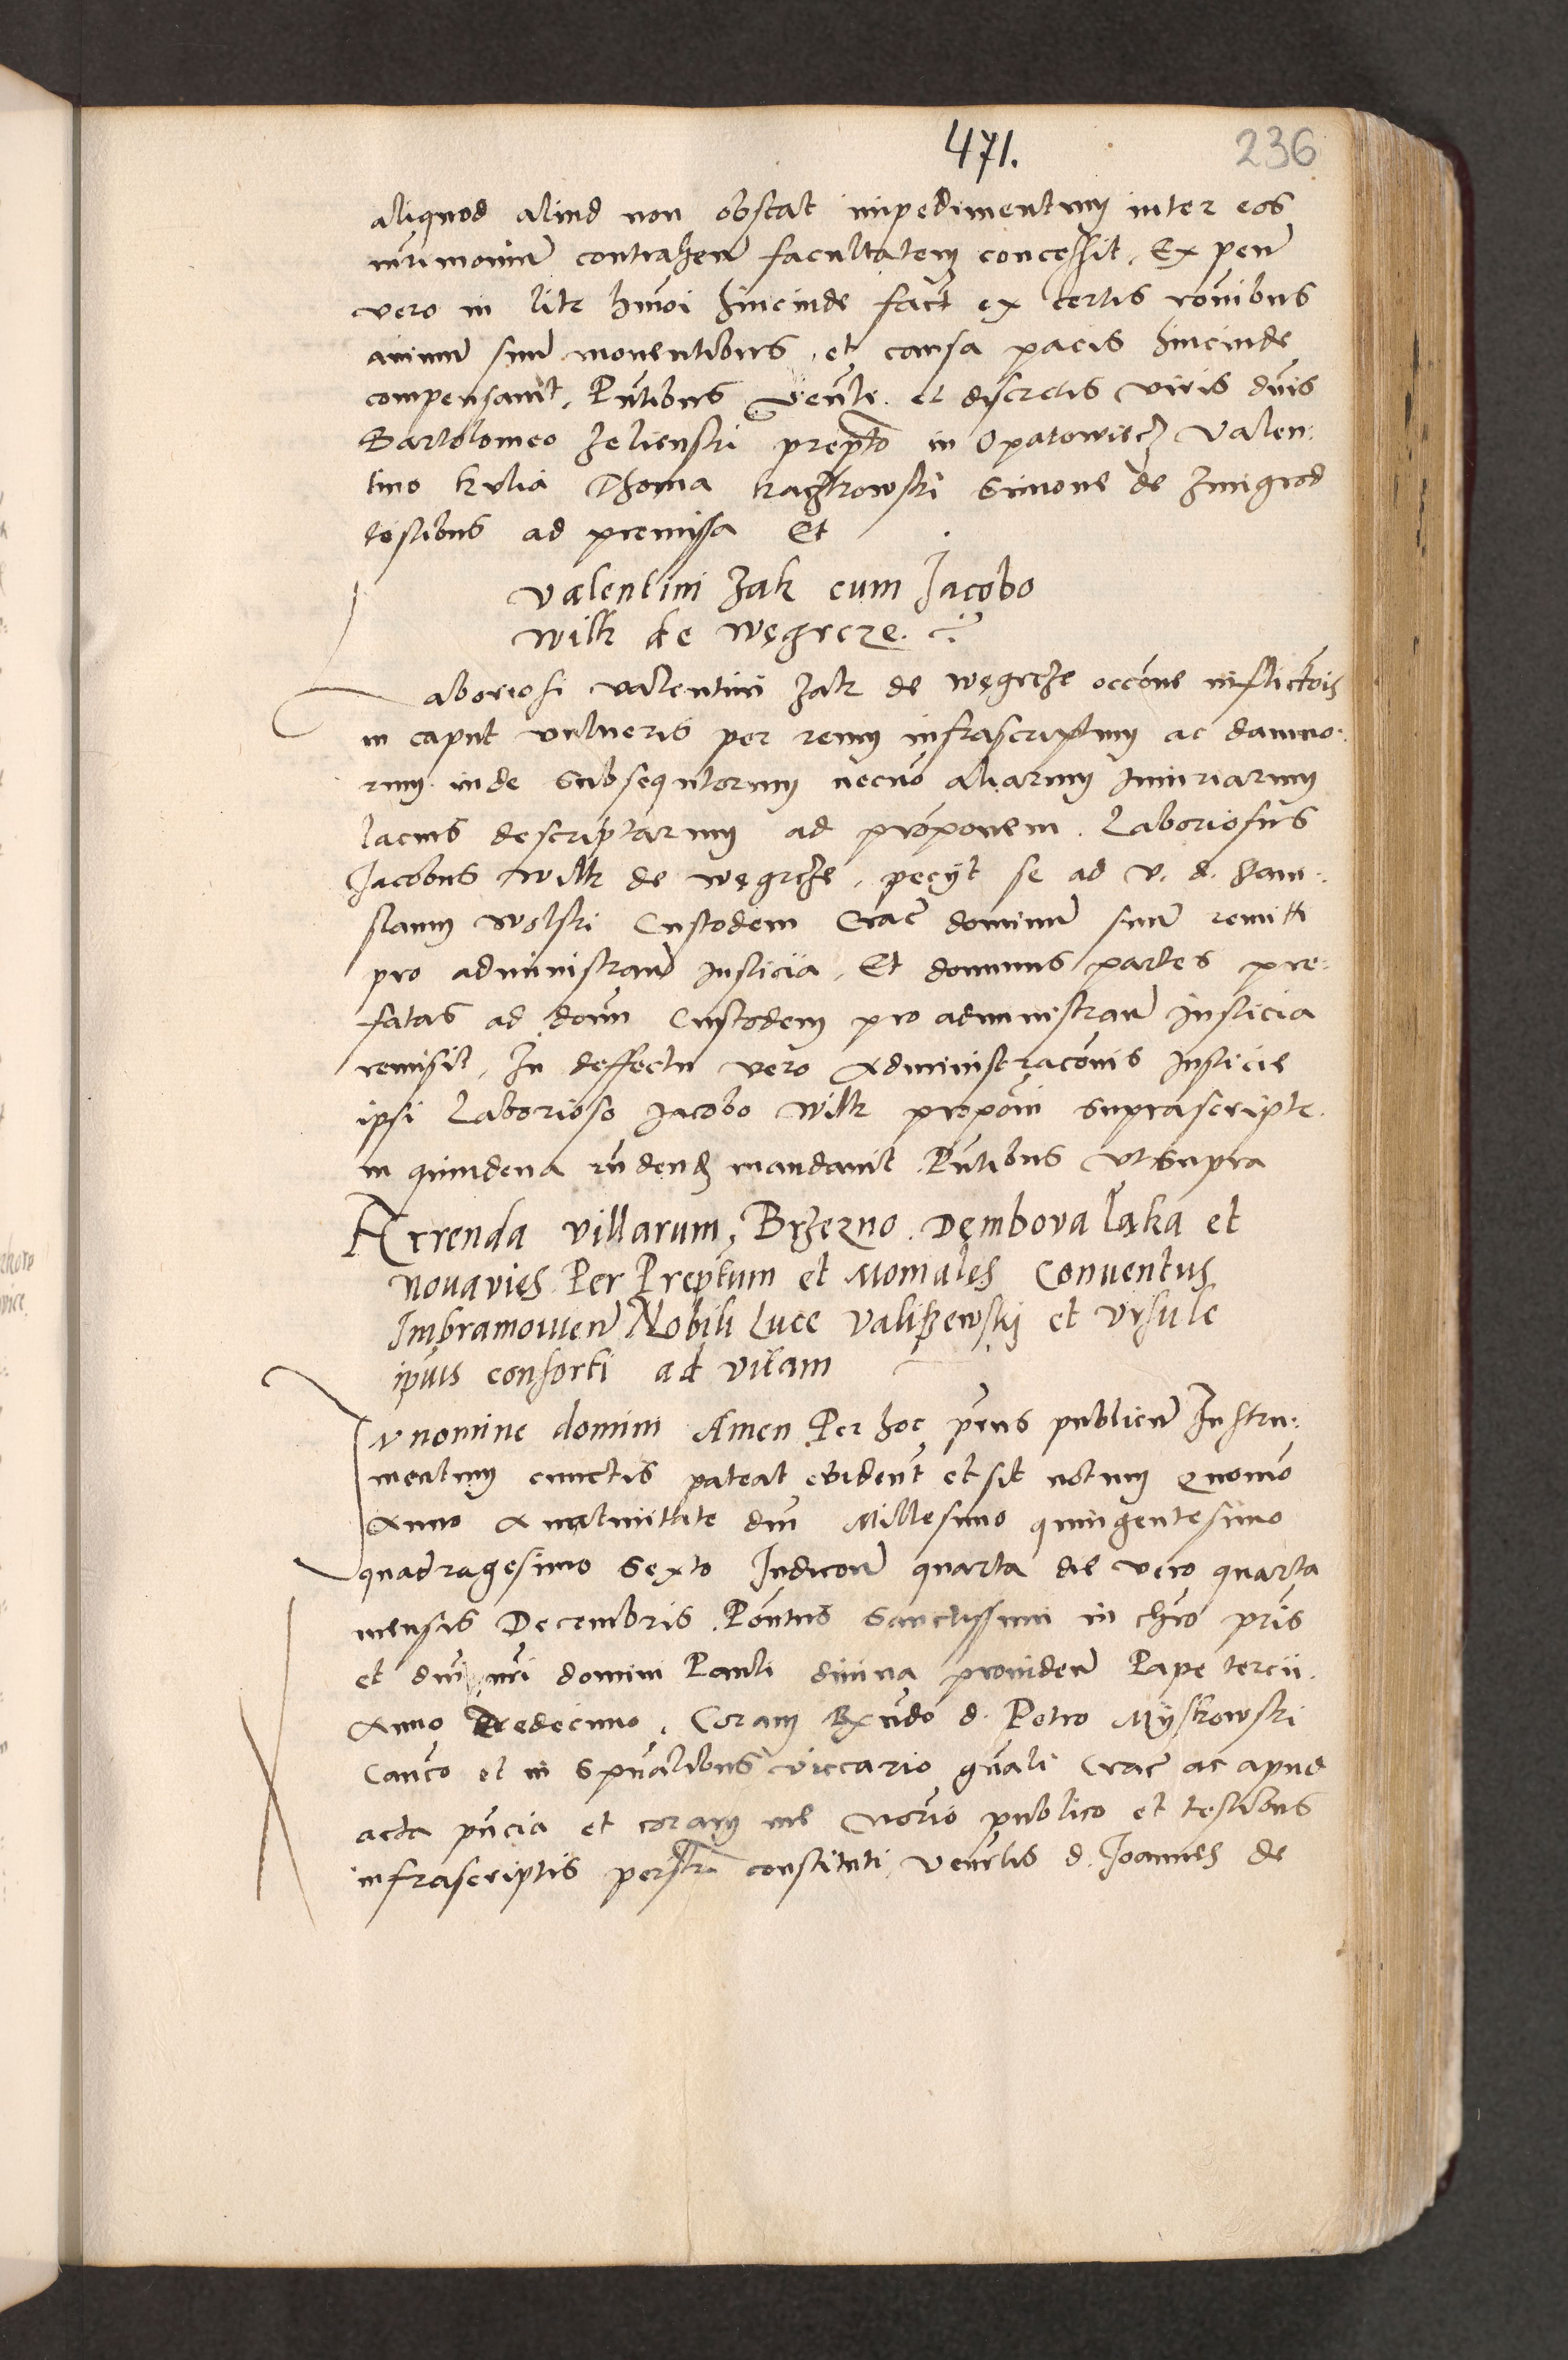 471.
236
aliquod aliud non obstat impedimentum inter eos
mrimoniu contrahen facultatem concessit, Expen
vero in lite hmoi hincinde fact ex certis rōnibus
animu suu monentibus, et causa pacis hincinde
compensavit, Pntibus venle. et discretis viris dnis
Bartolomeo Zelienski prepto in Opatowiecz Valen:
tino kulia Thoma kaczkowski Simone de Zmigrod
testibus ad premissa Et
Valentini Zak cum Jacobo
wilk de węgrcze.
Laboriosi Valentini Zak de węgrcze occōne inflictōis
in caput vulneris per reum infrascriptum ac damno:
rum inde subsequtorum necno aliarum iniuriarum
lacius descriptarum ad proponem. Laboriosus
Jacobus Wilk de węgrcze, peciit se ad v. d. Stani:
slaum Wolski Custodem Crac dominu suu remitti
pro administranda iusticia, Et dominus partes pre:
fatas ad dōm Custodem pro administran iusticia
remisit, In deffectu vero administracōnis iusticie
ipsi Laborioso Jacobo Wilk propōni suprascripte
in quindena rndend mandavit Pntibus vt supra
Arrenda villarum, Brzezno. Dęmbova Ląka et
Novavies Per Preptum et Moniales Conventus
Imbramovien Nobili Luce Valiszewskj et Vrsule
ipius consorti ad vitam
In nomine domini Amen Per hoc prens publicu Instru:
mentum cunctis pateat evident et sit notum Quomo
Anno A nativitate dni Millesimo quingentesimo
quadragesimo sexto Indicon quarta die vero quarta
mensis Decembris. Pōntus sanctissimi in chro pris
et dni nri domini Pauli divina providen Pape tercii.
Anno Tredecimo, Coram Rndo d. Petro Myskowski
Canco et in spualibus viccario gnali Crac ac apud
acta pncia et coram me Norio publico et testibus
infrascriptis personr constituti, venrlis d. Joannes de